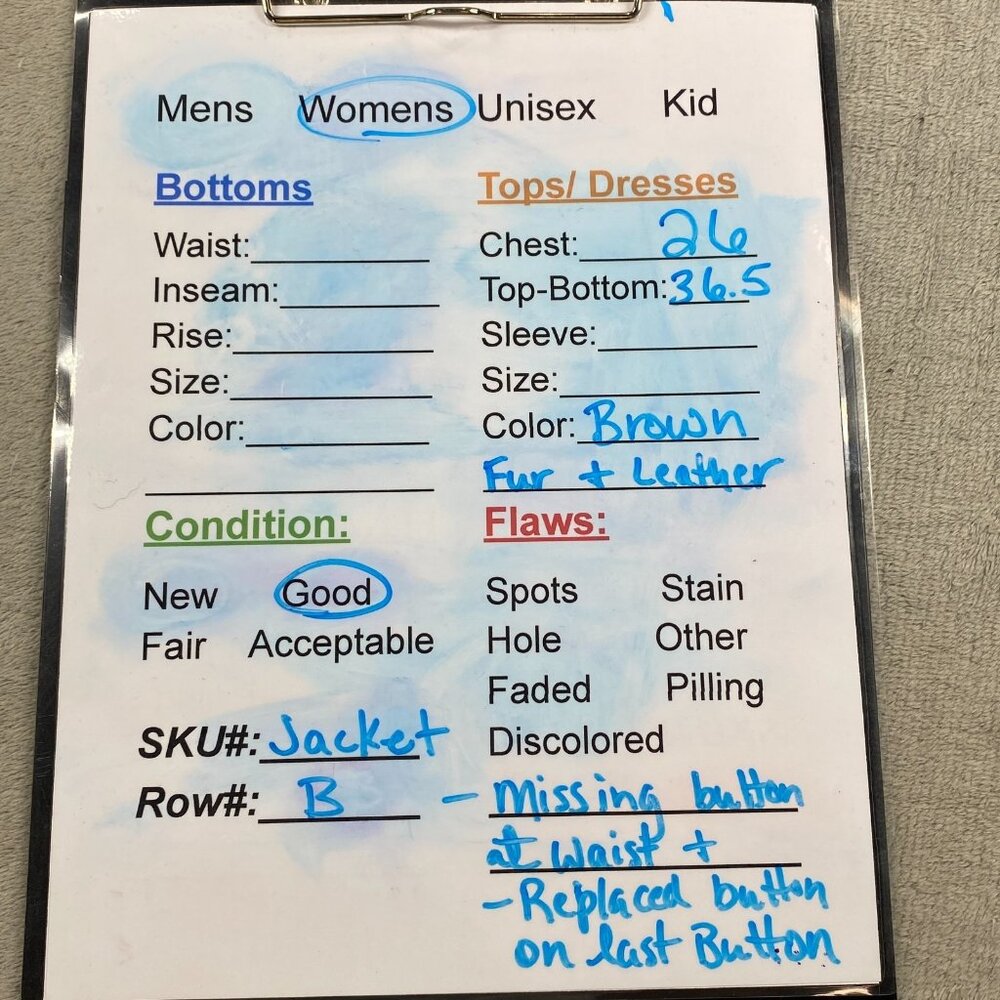 Mens Womens Unisex Kid
Bottoms
Waist:
Inseam:
Rise:
Size:
Color:
Tops/ Dresses
Chest: 26
Top-Bottom: 36.5
Sleeve:
Size:
Color: Brown
Fur + Leather
Condition:
New Good
Fair Acceptable
SKU#: Jacket
Row#: B
Flaws:
Spots Stain
Hole Other
Faded Pilling
Discolored
- Missing button
at waist +
- Replaced button
on last Button